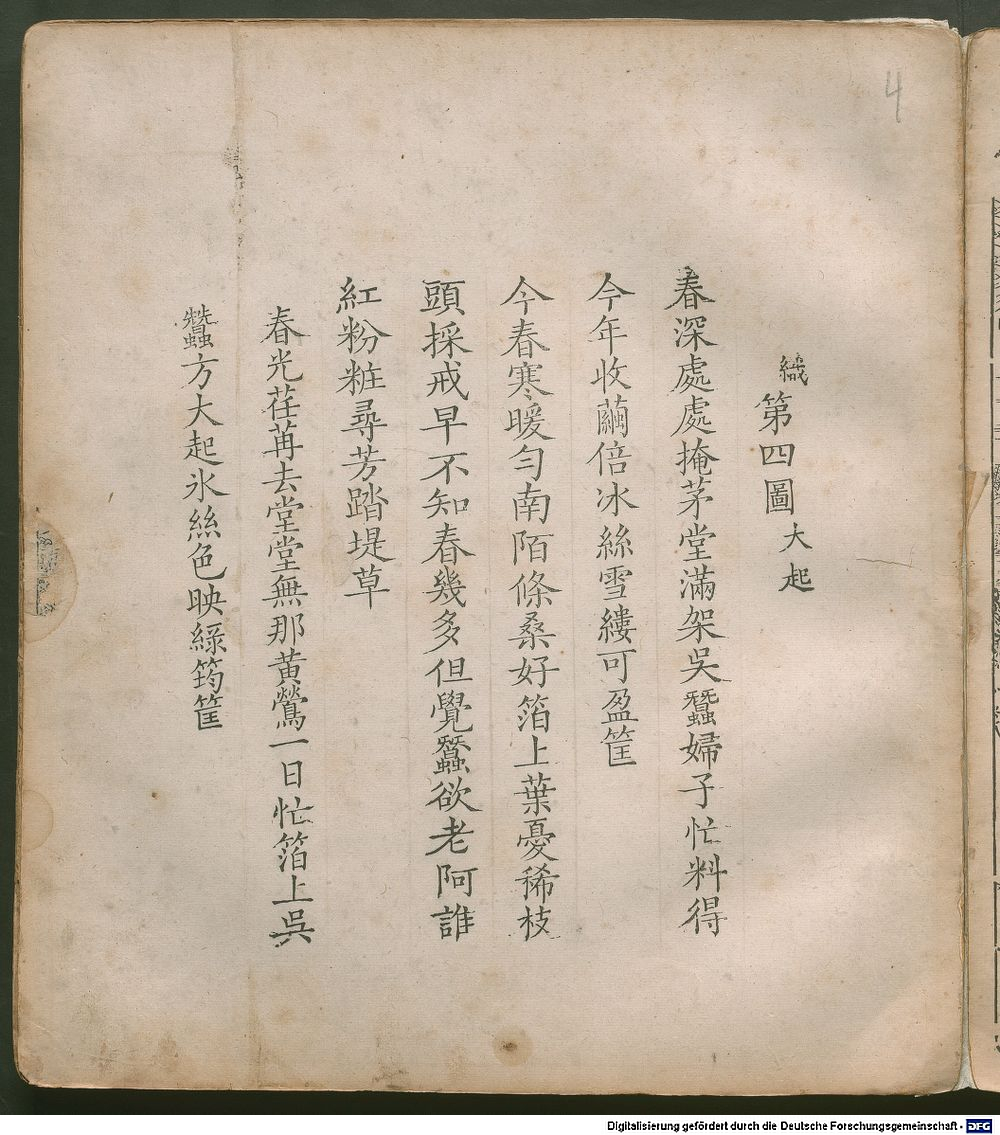 4
織第四圖大起
春深處處掩茅堂滿架吳蠶婦子忙料得
今年收繭倍冰絲雪縷可盈筐
今春寒暖勻南陌條桑好箔上葉憂稀枝
頭採戒早不知春幾多但覺蠶欲老阿誰
紅粉粧尋芳踏堤草
春光荏苒去堂堂無那黄鶯一日忙箔上吳
蠶方大起氷絲色映綠筠筐
Digitalisierung gefördert durch die Deutsche Forschungsgemeinschaft - DFG